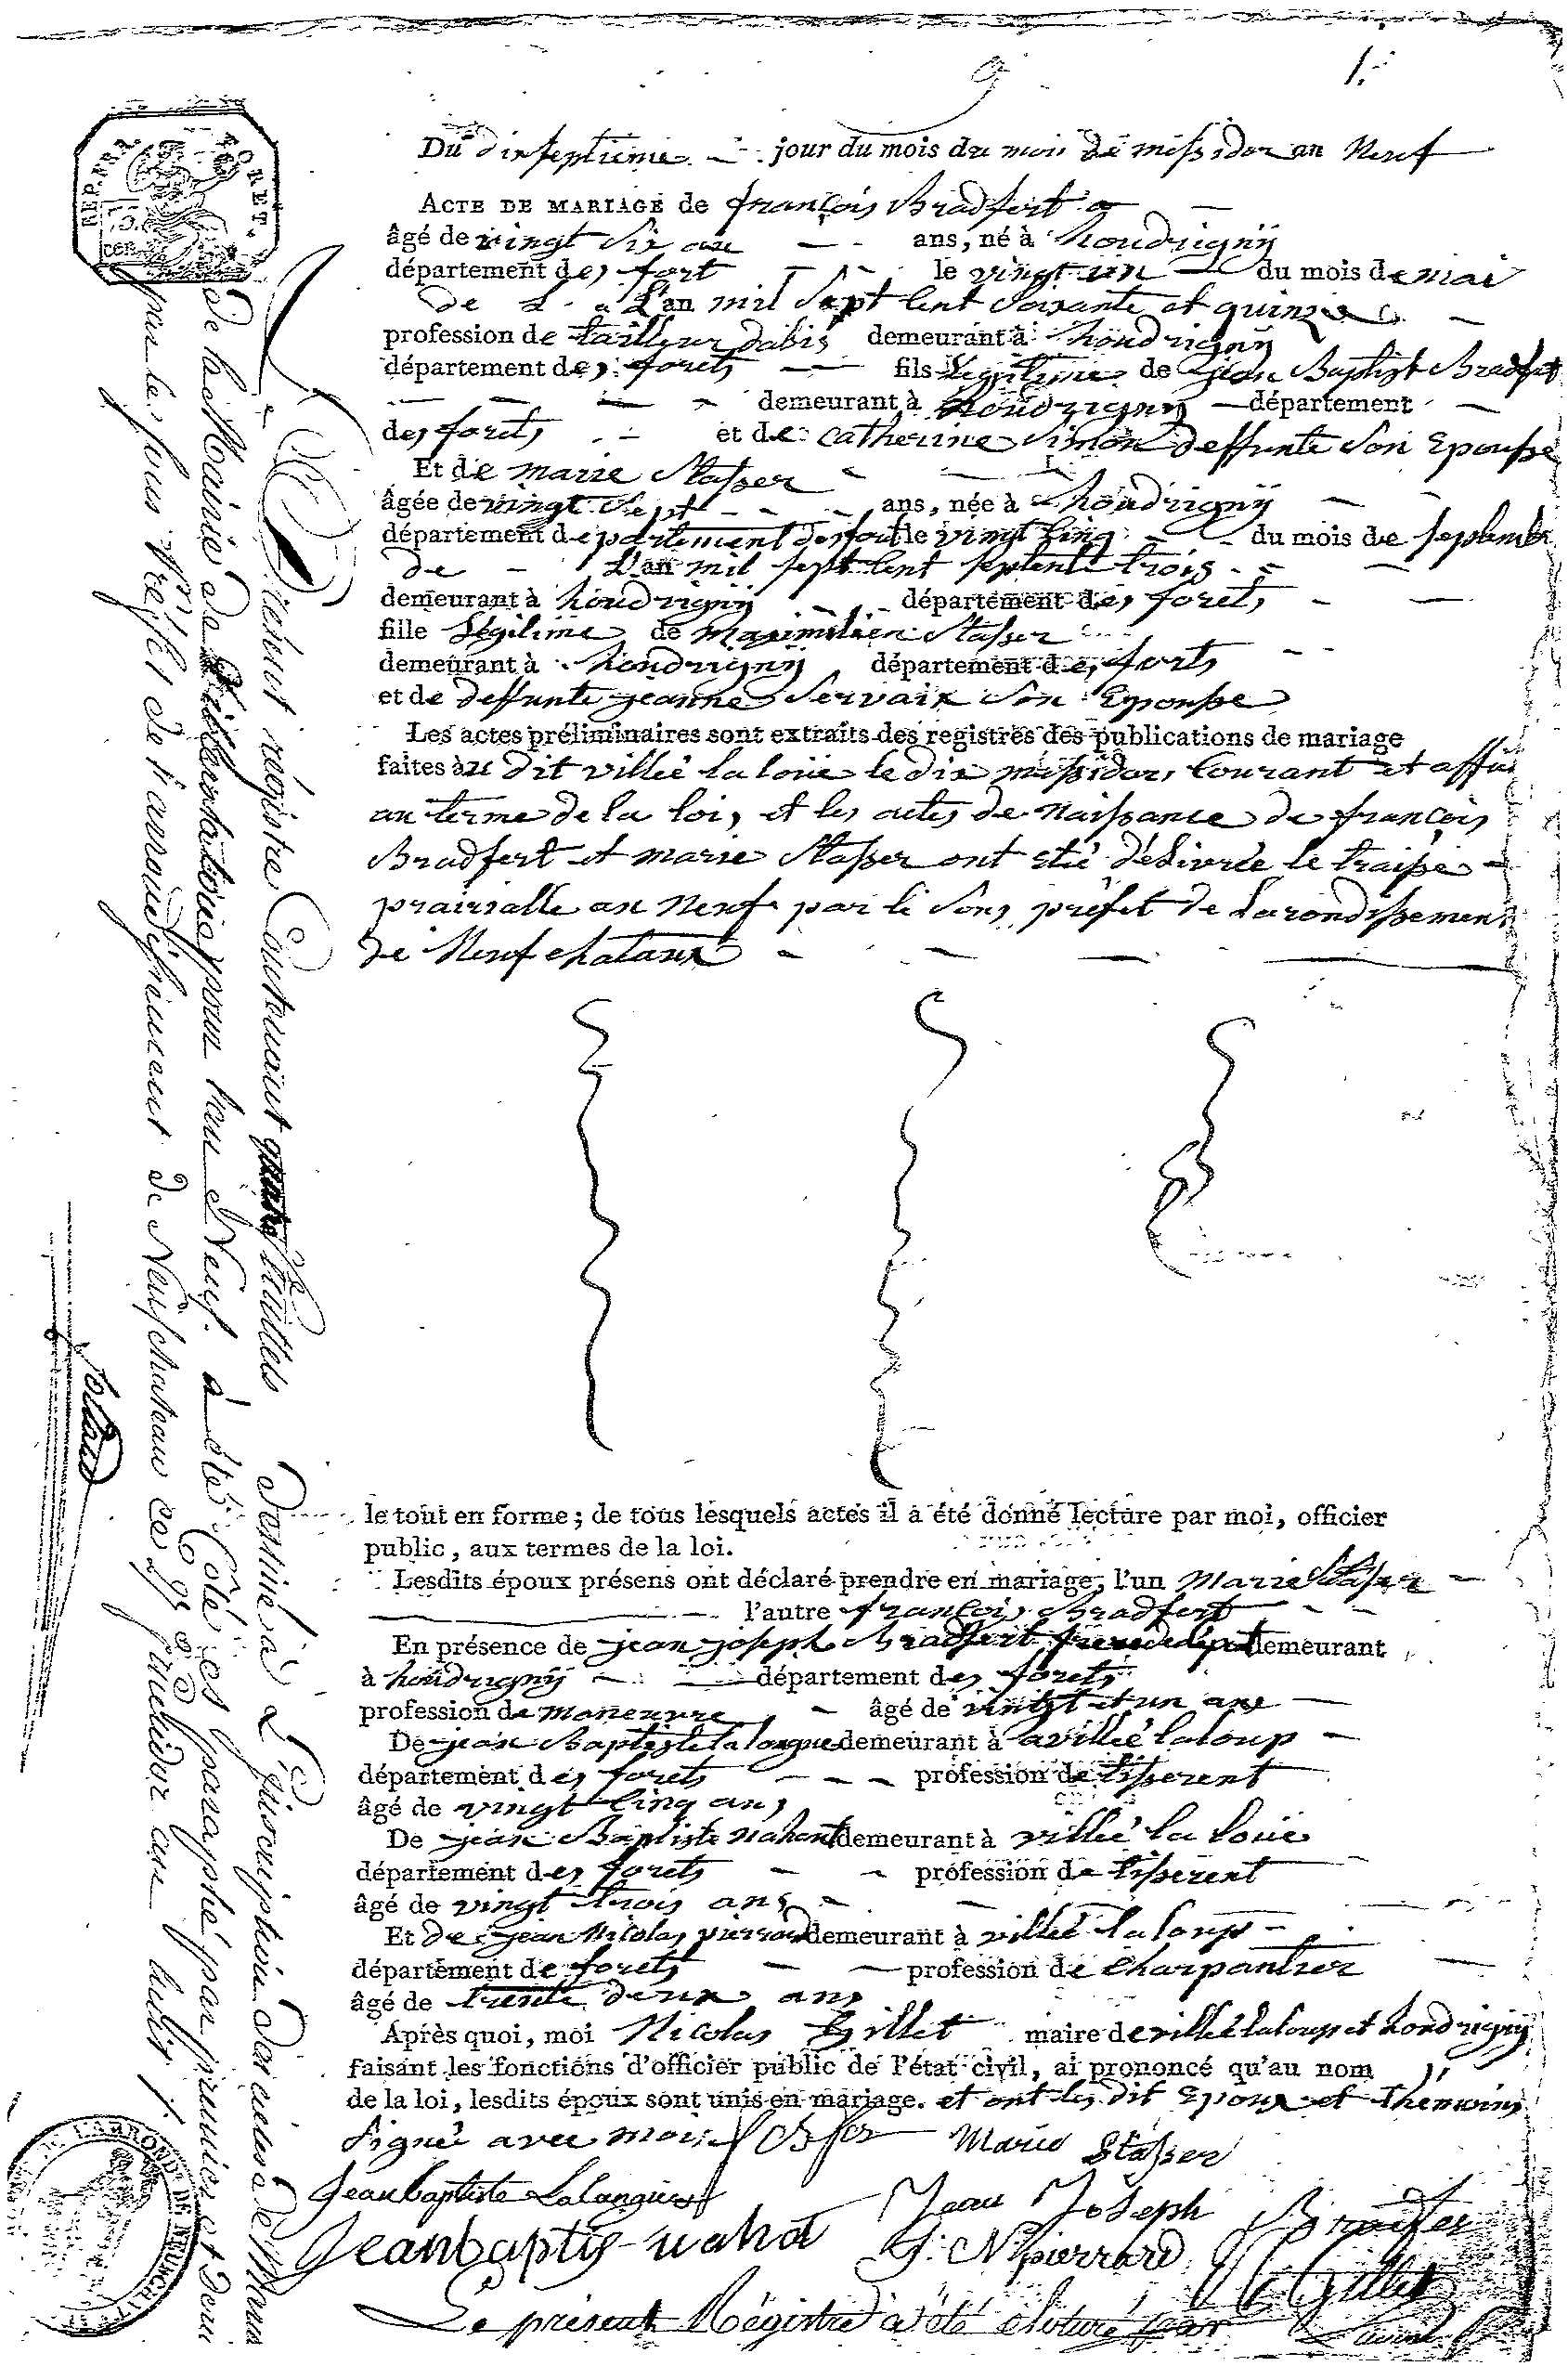 1.
REP. FRA.
FORET.
Du dixseptieme jour du mois du mois de messidor an Neuf
ACTE DE MARIAGE de françois Bradfert
âgé de vingt six an ans, né à houdrignÿ
département des fort le vingt un du mois de mai
de L'an mil sept Cent Soixante et quinze
profession de tailleur dabis demeurant à houdrignÿ
département des forets fils Legitime de jean Baptist Bradfert
demeurant à houdrignÿ département
des forets et de catherine Simon deffunte son Epousse
Et de marie Stasser
âgée de vingt sept ans, née à houdrignÿ
département departement des fort le vingt Cinq du mois de septembr
de L'an mil sept Cent septente trois
demeurant à houdrignÿ département des forets
fille Légitime de maximilien Stasser
demeurant à houdrignÿ département des forts
et de deffunte jeanne Servaix son Epousse
Les actes préliminaires sont extraits des registres des publications de mariage
faites au dit villée la loüe le dix messidor, Courant et affii
au terme de la loi, et les actes de Naissance de françois
Bradfert et marie Stasser ont été délivrée le traise
prairialle an Neuf par le Sous préfet de Larondissement
de Neufchataux
le tout en forme ; de tous lesquels actes il a été donné lecture par moi, officier
public, aux termes de la loi.
Lesdits époux présens ont déclaré prendre en mariage, l'un Marie Stasser
l'autre françois Bradfert
En présence de jean joseph Bradfert demeurant
à houdrignÿ département des forets
profession de maneuvre âgé de vingt et un ans
De jean Baptiste la langue demeurant à a villée laloup
département des forets profession de tisserent
âgé de vingt Cinq ans
De jean Baptiste Nahant demeurant à villée la loüe
département des forets profession de tisserent
âgé de vingt trois ans
Et de jean Nicolas pierrard demeurant à villée la loup
département de forets profession de Charpantier
âgé de trente deux ans
Après quoi, moi Nicolas Gillet maire de villée laloup et houdrignÿ
faisant les fonctions d'officier public de l'état civil, ai prononcé qu'au nom
de la loi, lesdits époux sont unis en mariage. et ont les dit Epoux et themoins
Signé avec moi Marie Stasser
Jean baptiste Lalangue Jean Joseph Bradfer
Jean baptis naha J: N pierrard Gillet
Le présent Régistre a été cloturé par
Le présent régistre Contenant feuilles Destiné à L'Inscription des actes de
de la Mairie de pour l'an Neuf à été Côté et paraphé par premier et
par le Sous Préfet de l'arrondissement de Neufchateau ce prairial an huit
L'ARROND. DE NEUFCHATEAU